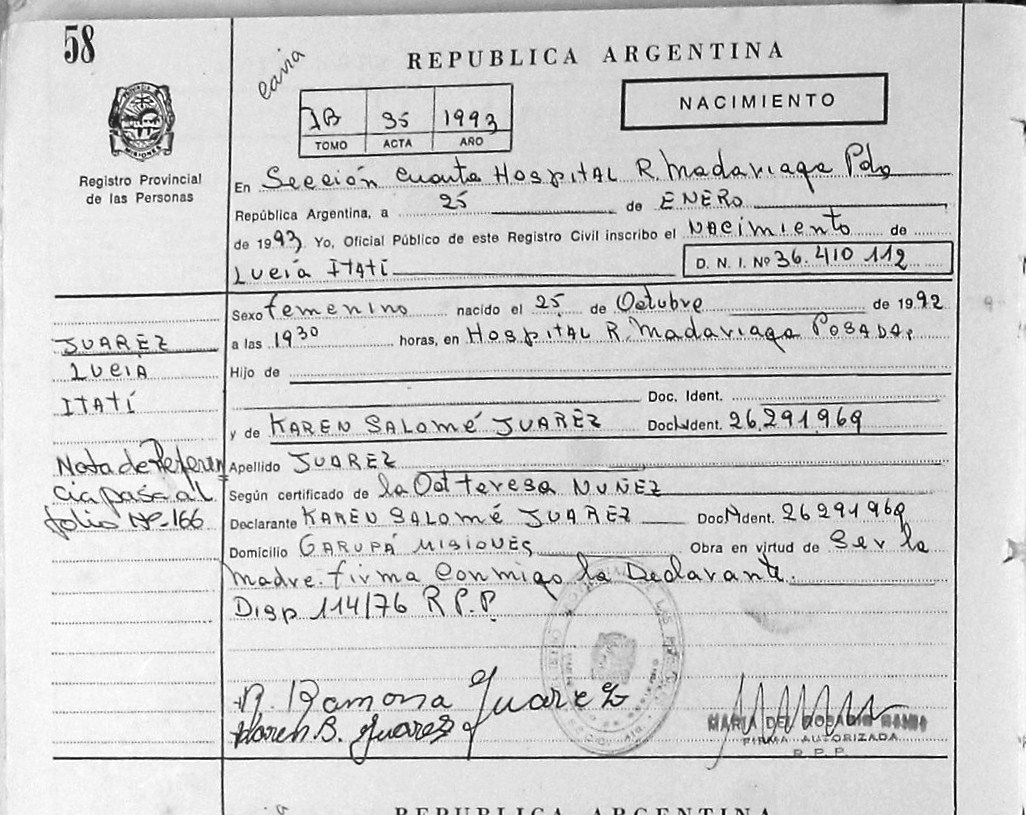 58
REPUBLICA ARGENTINA
NACIMIENTO
1B 35 1993
TOMO ACTA AÑO
Registro Provincial
de las Personas
MISIONES
En Sección Cuarta Hospital R. Madariaga Pdas
República Argentina, a 25 de ENERO
de 1993 Yo, Oficial Público de este Registro Civil inscribo el Nacimiento de
Lucía Itatí D. N. I. Nº 36.410.112
Sexo femenino nacido el 25 de Octubre de 1992
a las 1930 horas, en Hospital R. Madariaga Posadas
JUAREZ
LUCIA
ITATÍ
Hijo de
Doc. Ident.
y de KAREN SALOMÉ JUAREZ Doc. Ident. 26.291.969
Nota de Referen
cia pasa al
folio Nº-166
Apellido JUAREZ
Según certificado de la Oct Teresa NUÑEZ
Declarante KAREN SALOMÉ JUAREZ Doc. Ident. 26291969
Domicilio GARUPÁ MISIONES Obra en virtud de Ser la
madre. firma Conmigo la Declarante.
Disp 114/76 R.P.P.
R. Ramona Juarez
Karen B. Juarez
MARIA DEL ROSARIO
FIRMA AUTORIZADA
R.P.P.
REPUBLICA ARGENTINA